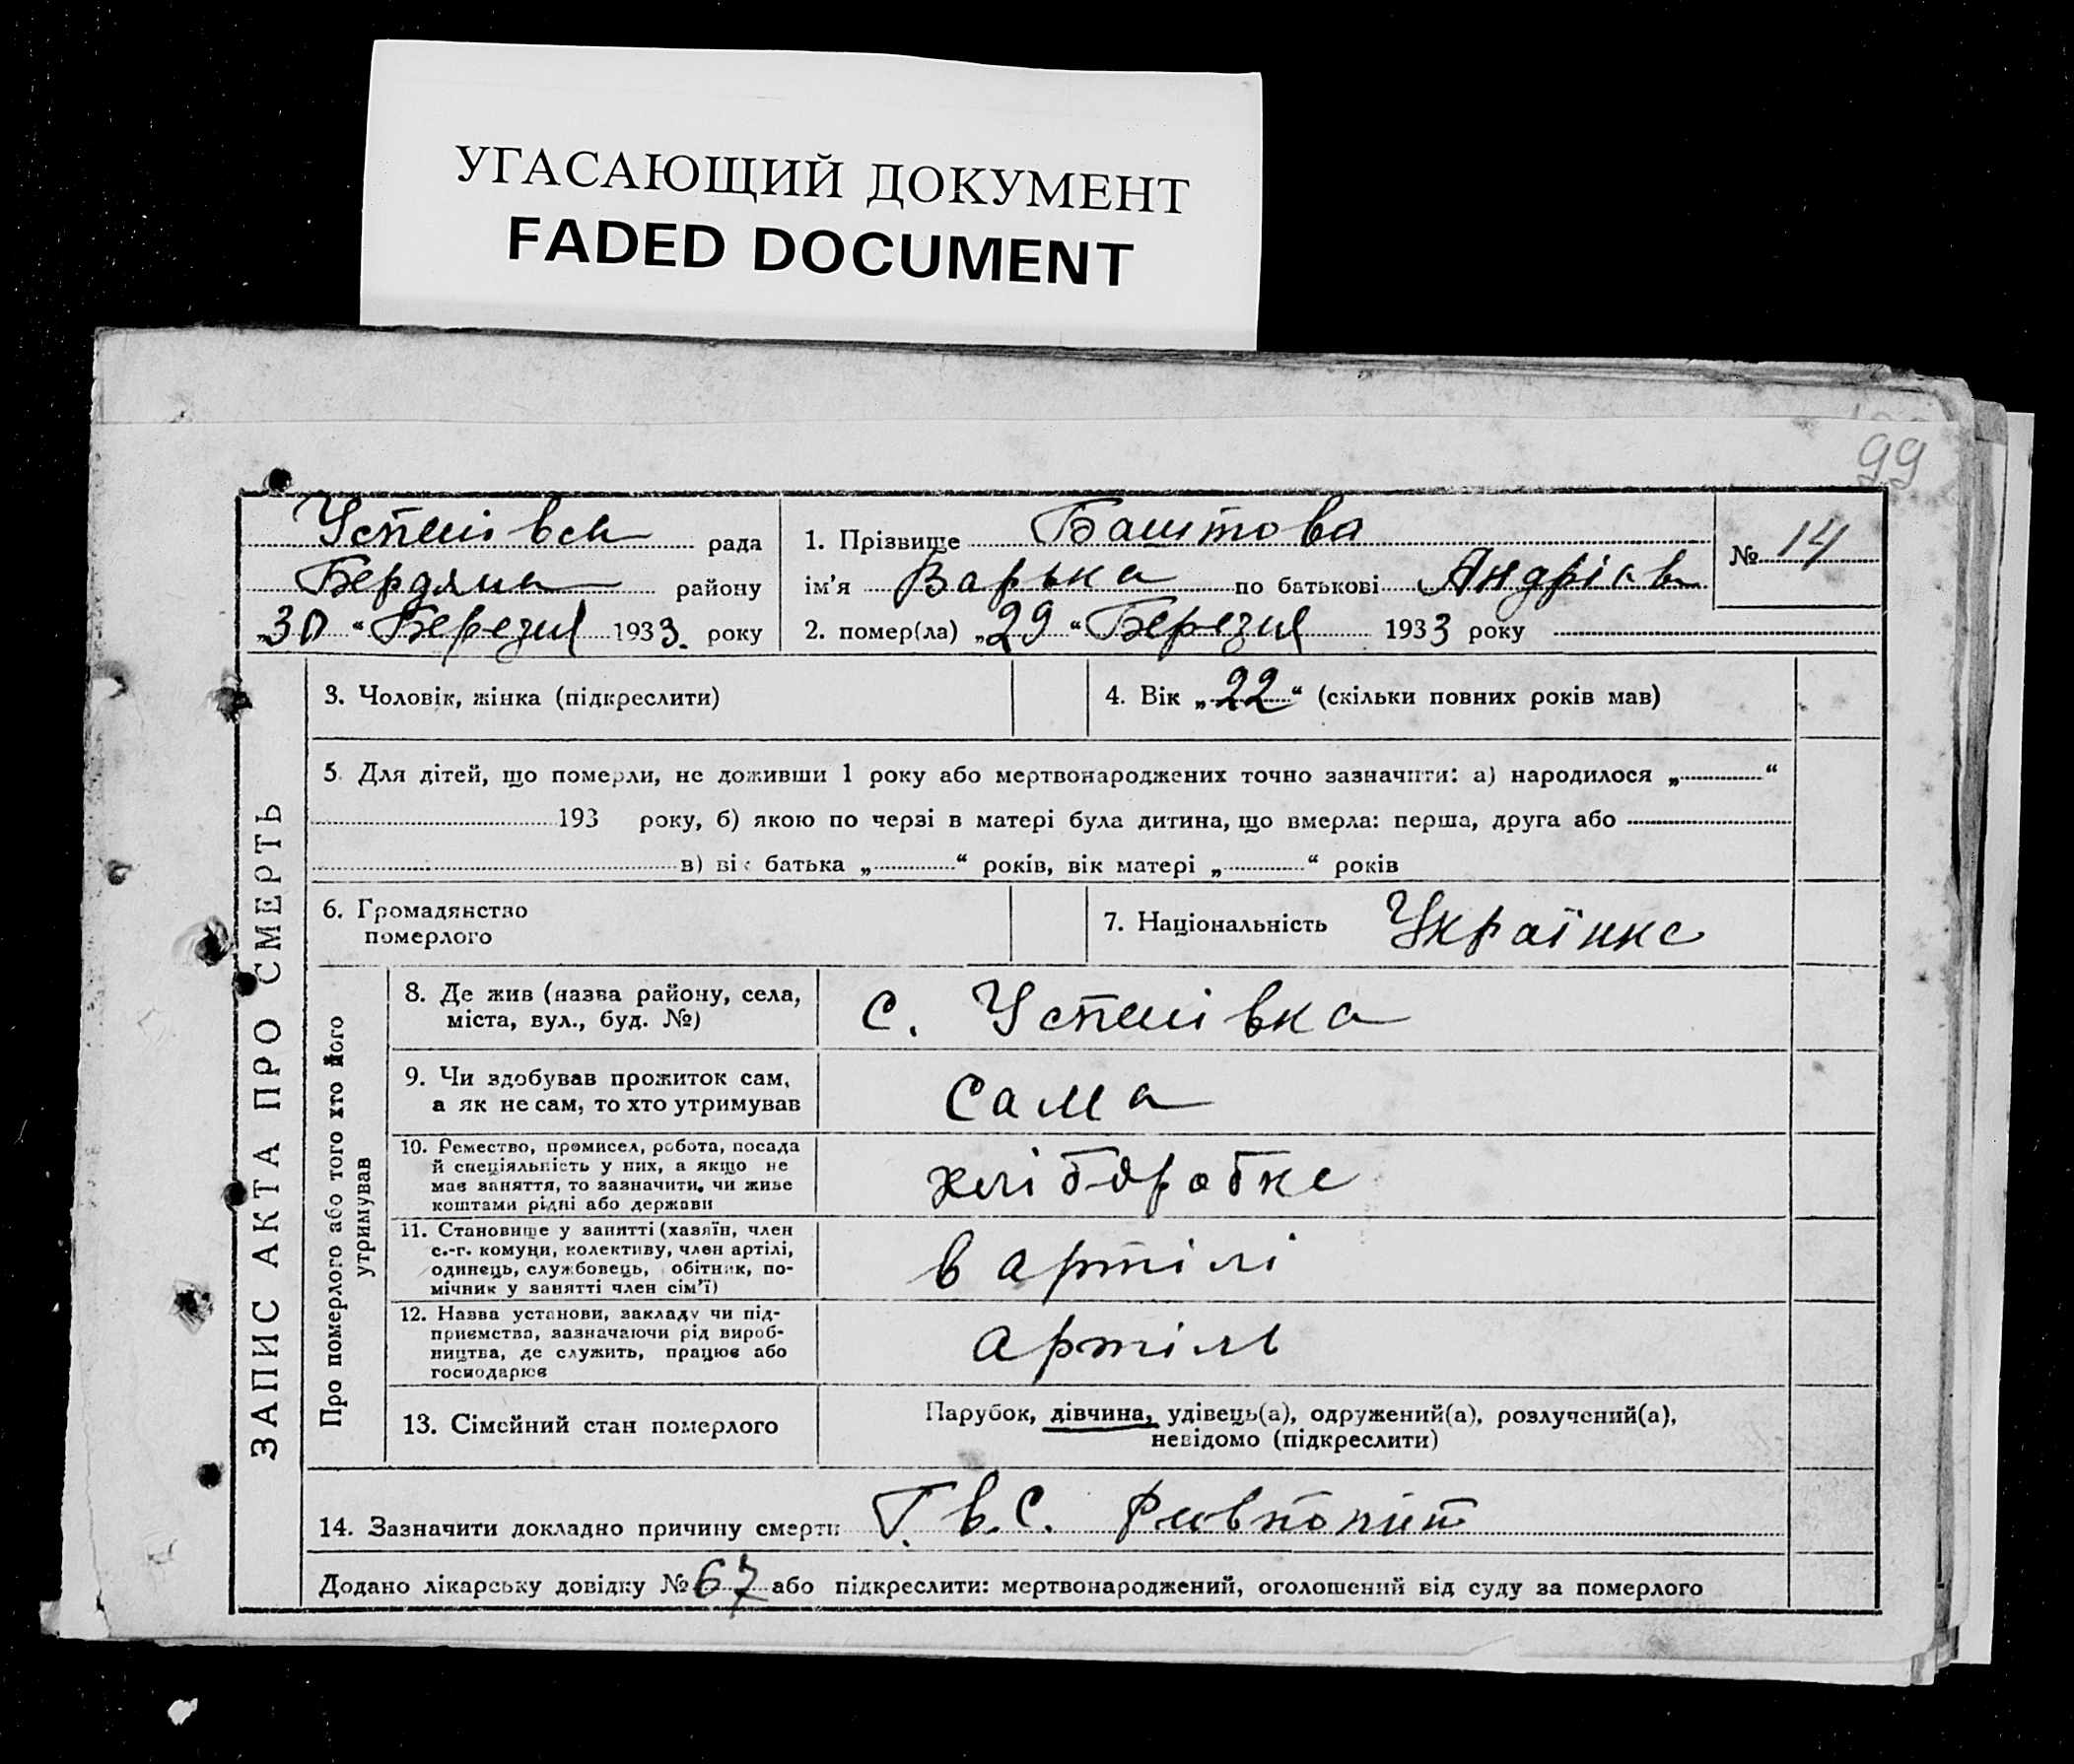 УГАСАЮЩИЙ ДОКУМЕНТ
FADED DOCUMENT
99
Успенівсь рада
Бердянс району
„30 “ Березня 1933. року
1. Прізвище Баштова
ім’я Варька по батькові Андріїв
2. помер(ла) „29 “ Березня 1933 року
№ 14
ЗАПИС АКТА ПРО СМЕРТЬ
3. Чоловік, жінка (підкреслити)
4. Вік „22“ (скільки повних років мав)
5. Для дітей, що померли, не доживши 1 року або мертвонароджених точно зазначити: а) народилося „ “
193 року, б) якою по черзі в матері була дитина, що вмерла: перша, друга або
в) вік батька „ “ років, вік матері „ “ років
6. Громадянство
померлого
7. Національність Українка
Про померлого або того хто його
утримував
8. Де жив (назва району, села,
міста, вул., буд. №)
с. Успенівка
9. Чи здобував прожиток сам,
а як не сам, то хто утримував
Сама
10. Ремество, промисел, робота, посада
й спеціяльність у них, а якщо не
має заняття, то зазначити, чи живе
коштами рідні або держави
хліборобка
11. Становище у занятті (хазяїн, член
с.-г. комуни, колективу, член артілі,
одинець, службовець, обітник, по-
мічник у занятті член сім’ї)
в артілі
12. Назва установи, закладу чи під-
приємства, зазначаючи рід вироб-
ництва, де служить, працює або
господарює
артіль
13. Сімейний стан померлого
Парубок, дівчина, удівець(а), одружений(а), розлучений(а),
невідомо (підкреслити)
14. Зазначити докладно причину смерти Г. в. С.
Додано лікарську довідку № 67 або підкреслити: мертвонароджений, оголошений від суду за померлого